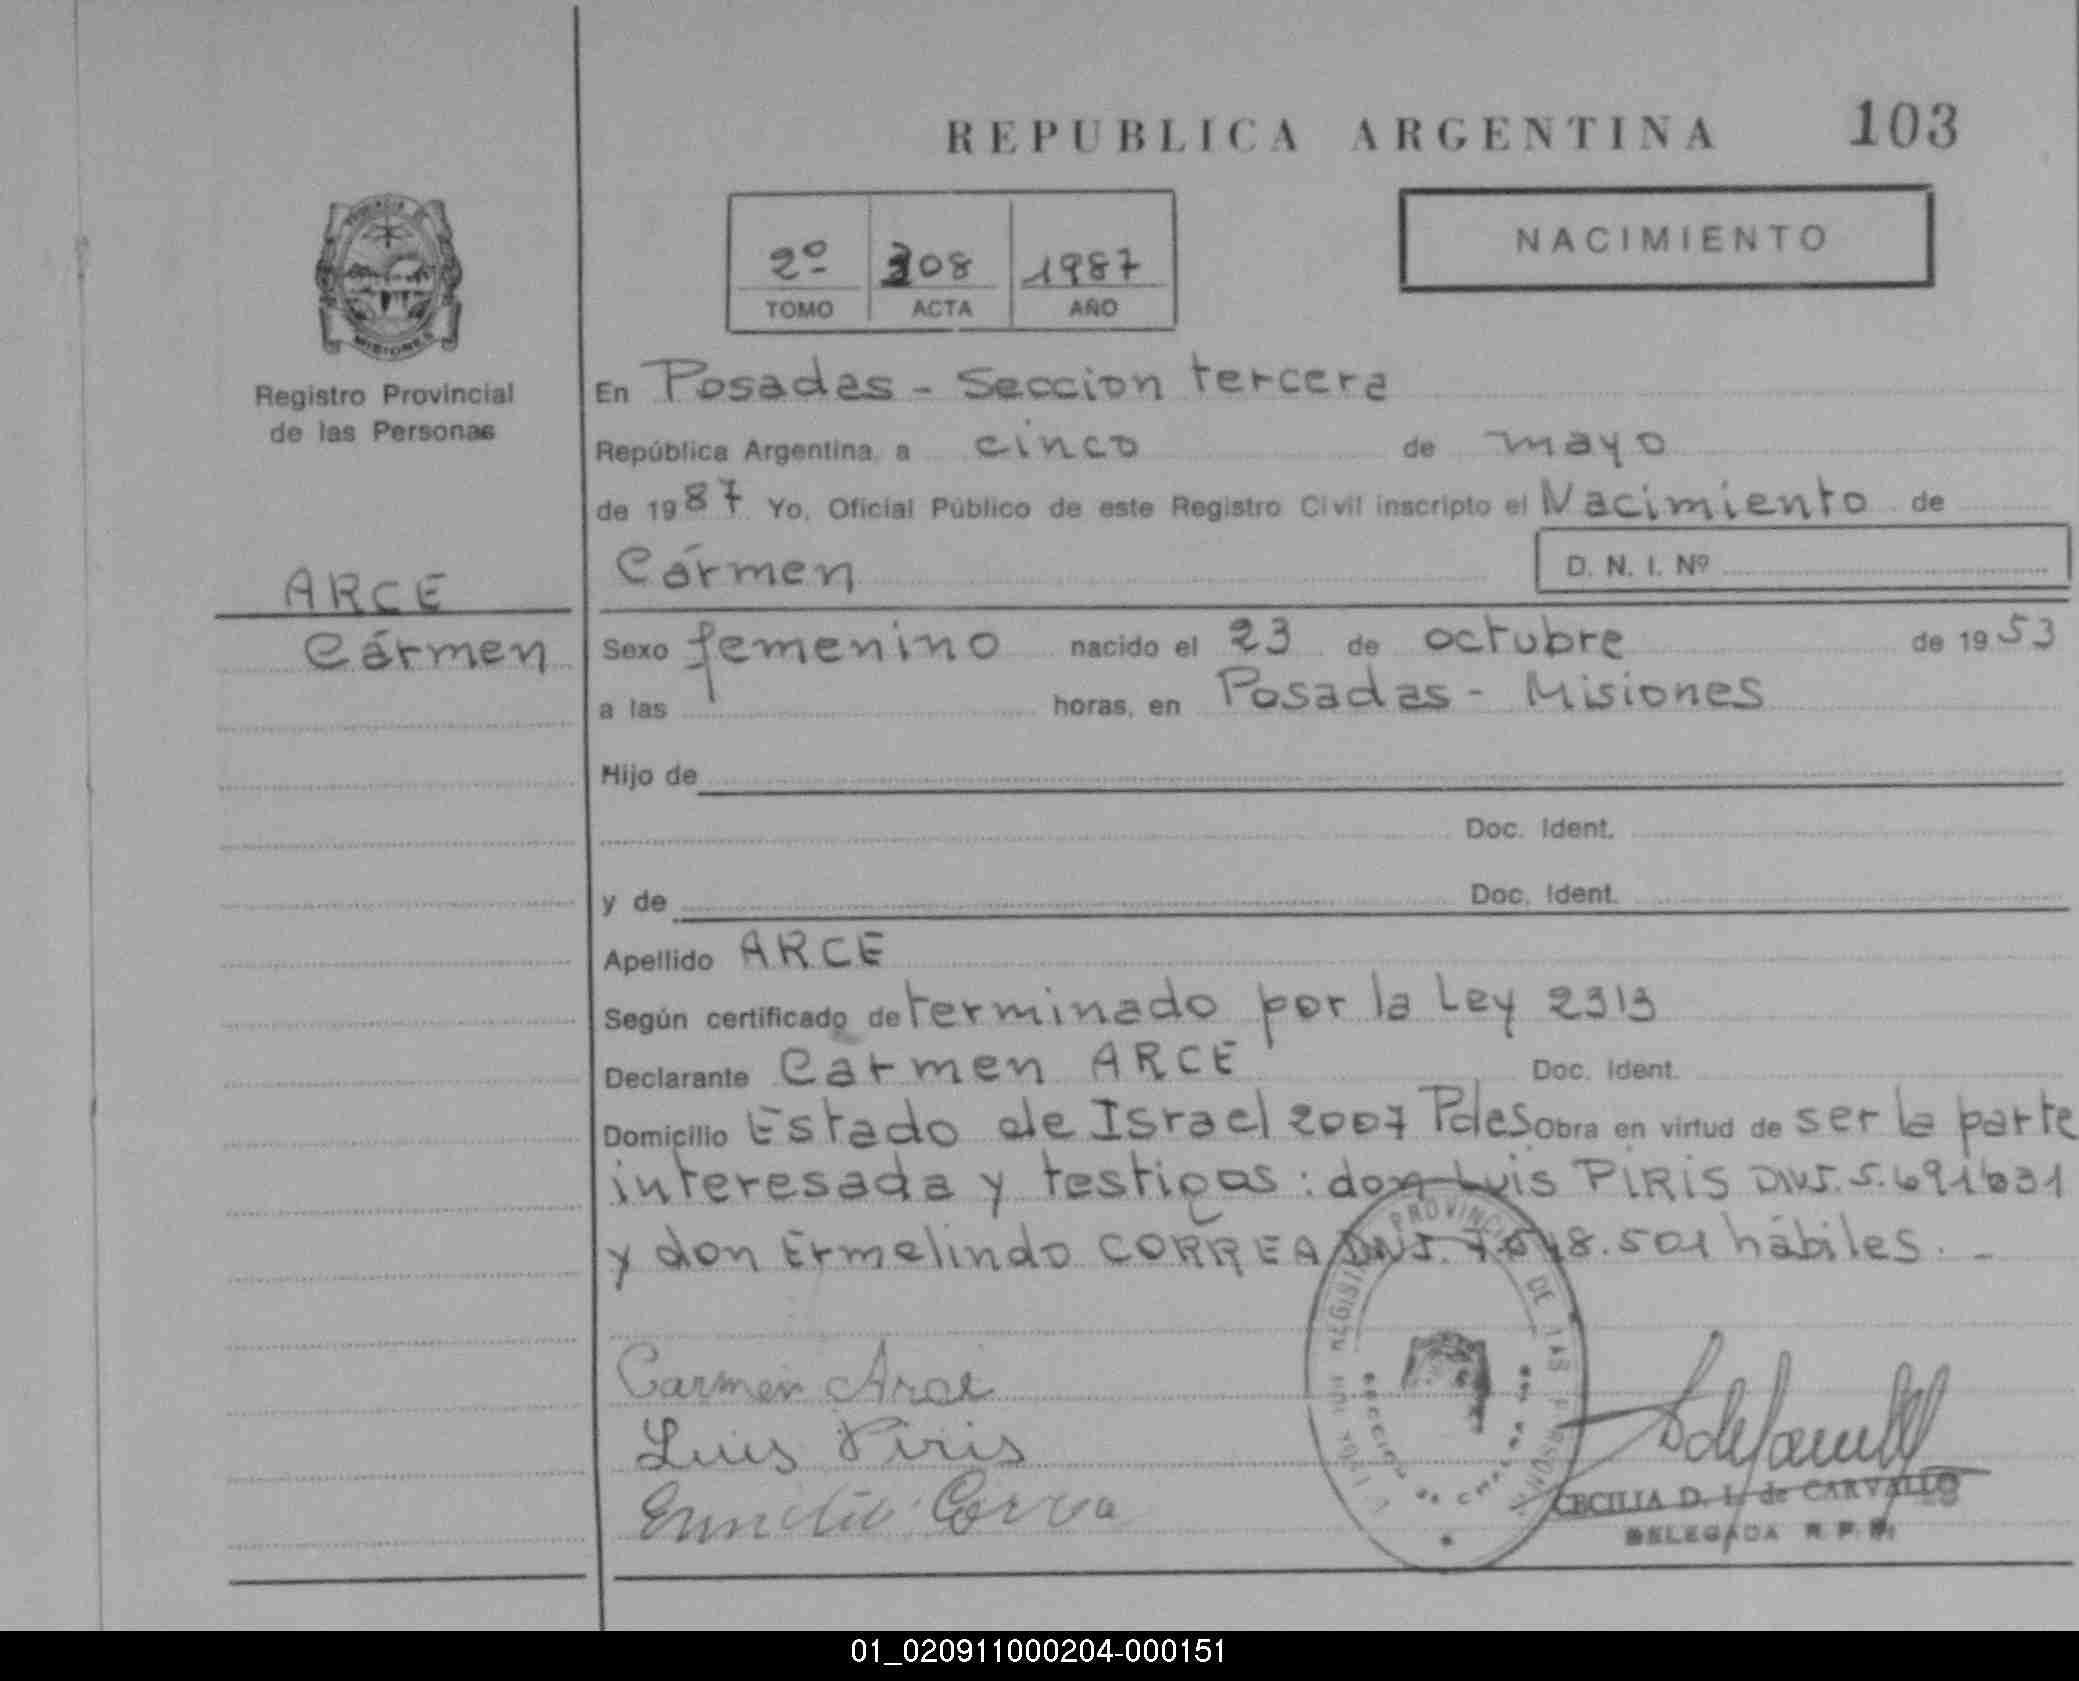 REPUBLICA ARGENTINA 103
NACIMIENTO
2º 308 1987
TOMO ACTA AÑO
MISIONES
Registro Provincial
de las Personas
En Posadas - Seccion tercera
República Argentina, a cinco de mayo
de 1987 Yo, Oficial Público de este Registro Civil inscripto el Nacimiento de
Cármen
D. N. I. Nº
ARCE
Cármen
Sexo femenino nacido el 23 de octubre de 1953
a las horas, en Posadas - Misiones
Hijo de
Doc. Ident.
y de Doc. Ident.
Apellido ARCE
Según certificado determinado por la Ley 2313
Declarante Carmen ARCE Doc. Ident.
Domicilio Estado de Israel 2007 Pdes Obra en virtud de ser la parte
interesada y testigos: don Luis PIRIS DNI. 5.691631
y don Ermelindo CORREA DNI. 8.501 hábiles. -
PROVINCIAL DE LAS PERSONAS
Carmen Arce
Luis Piris
CECILIA D. L. de CARVALLO
DELEGADA R. P. P.
01_020911000204-000151